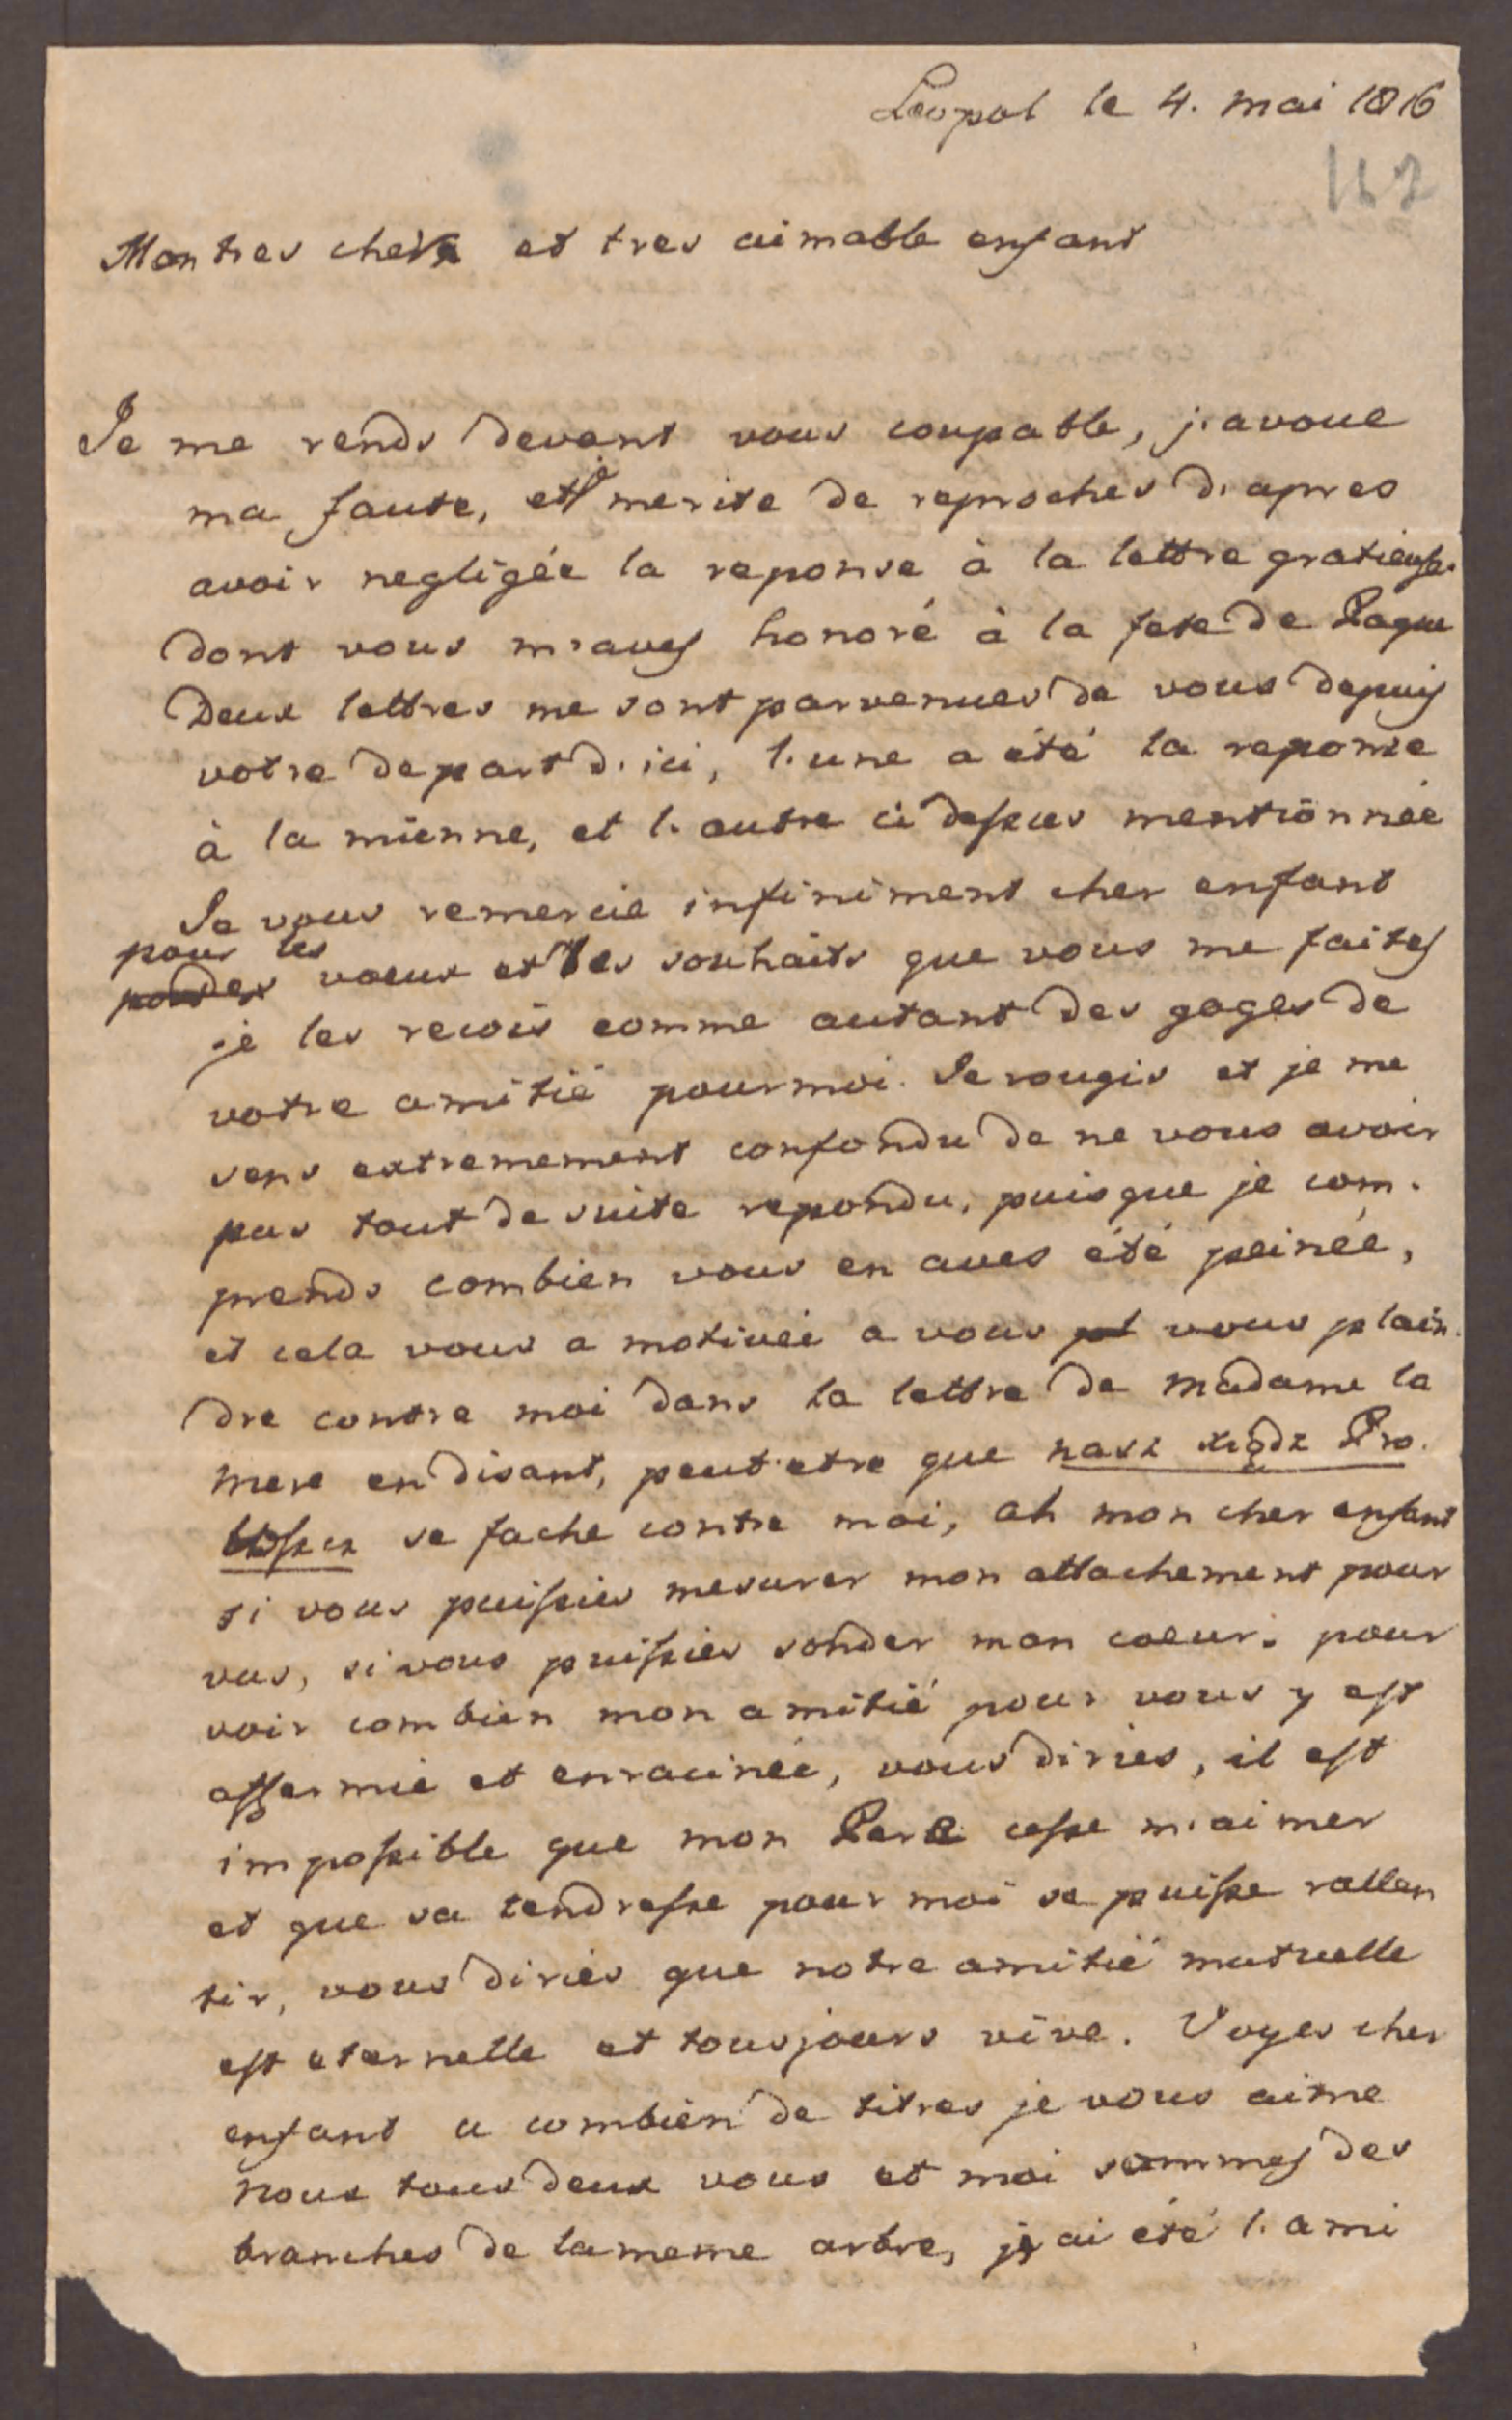 Leopol le 4. mai 1816
162
Mon tres cher et tres aimable enfant
Je me rends devant vous coupable, j'avoue
ma faute, et je merite de reproches d'apres
avoir negligée la reponse à la lettre gratieuse
dont vous m'aves honoré à la fete de Paque
Deux lettres me sont parvenues de vous depuis
votre depart d'ici, l'une a été la reponse
à la mienne, et l'autre ci dessus mentionnée
Je vous remercie infiniment cher enfant
pour les
voeux et les souhaits que vous me faites
je les recois comme autant des gages de
votre amitié pour moi. Je rougis et je me
sens extremement confondu de ne vous avoir
pas tout de suite repondu, puisque je com-
prends combien vous en aves été peinée,
et cela vous a motivée a vous vous plain-
dre contre moi dans la lettre de Madame la
Mere en disant, peut etre que nasz xiądz Pro-
boszcz se fache contre moi, ah mon cher enfant
si vous puissies mesurer mon attachement pour
vus, si vous puissies sonder mon coeur. pour
voir combien mon amitié pour vous y est
affermie et enracinée, vous diries, il est
impossible que mon Pere cesse m'aimer
et que sa tendresse pour moi se puisse rallen
tir, vous diries que notre amitié mutuelle
est eternelle et tousjours vive. Voyes cher
enfant a combien de titres je vous aime
Nous tous deux vous et moi sommes des
branches de la meme arbre, j'ai été l'ami